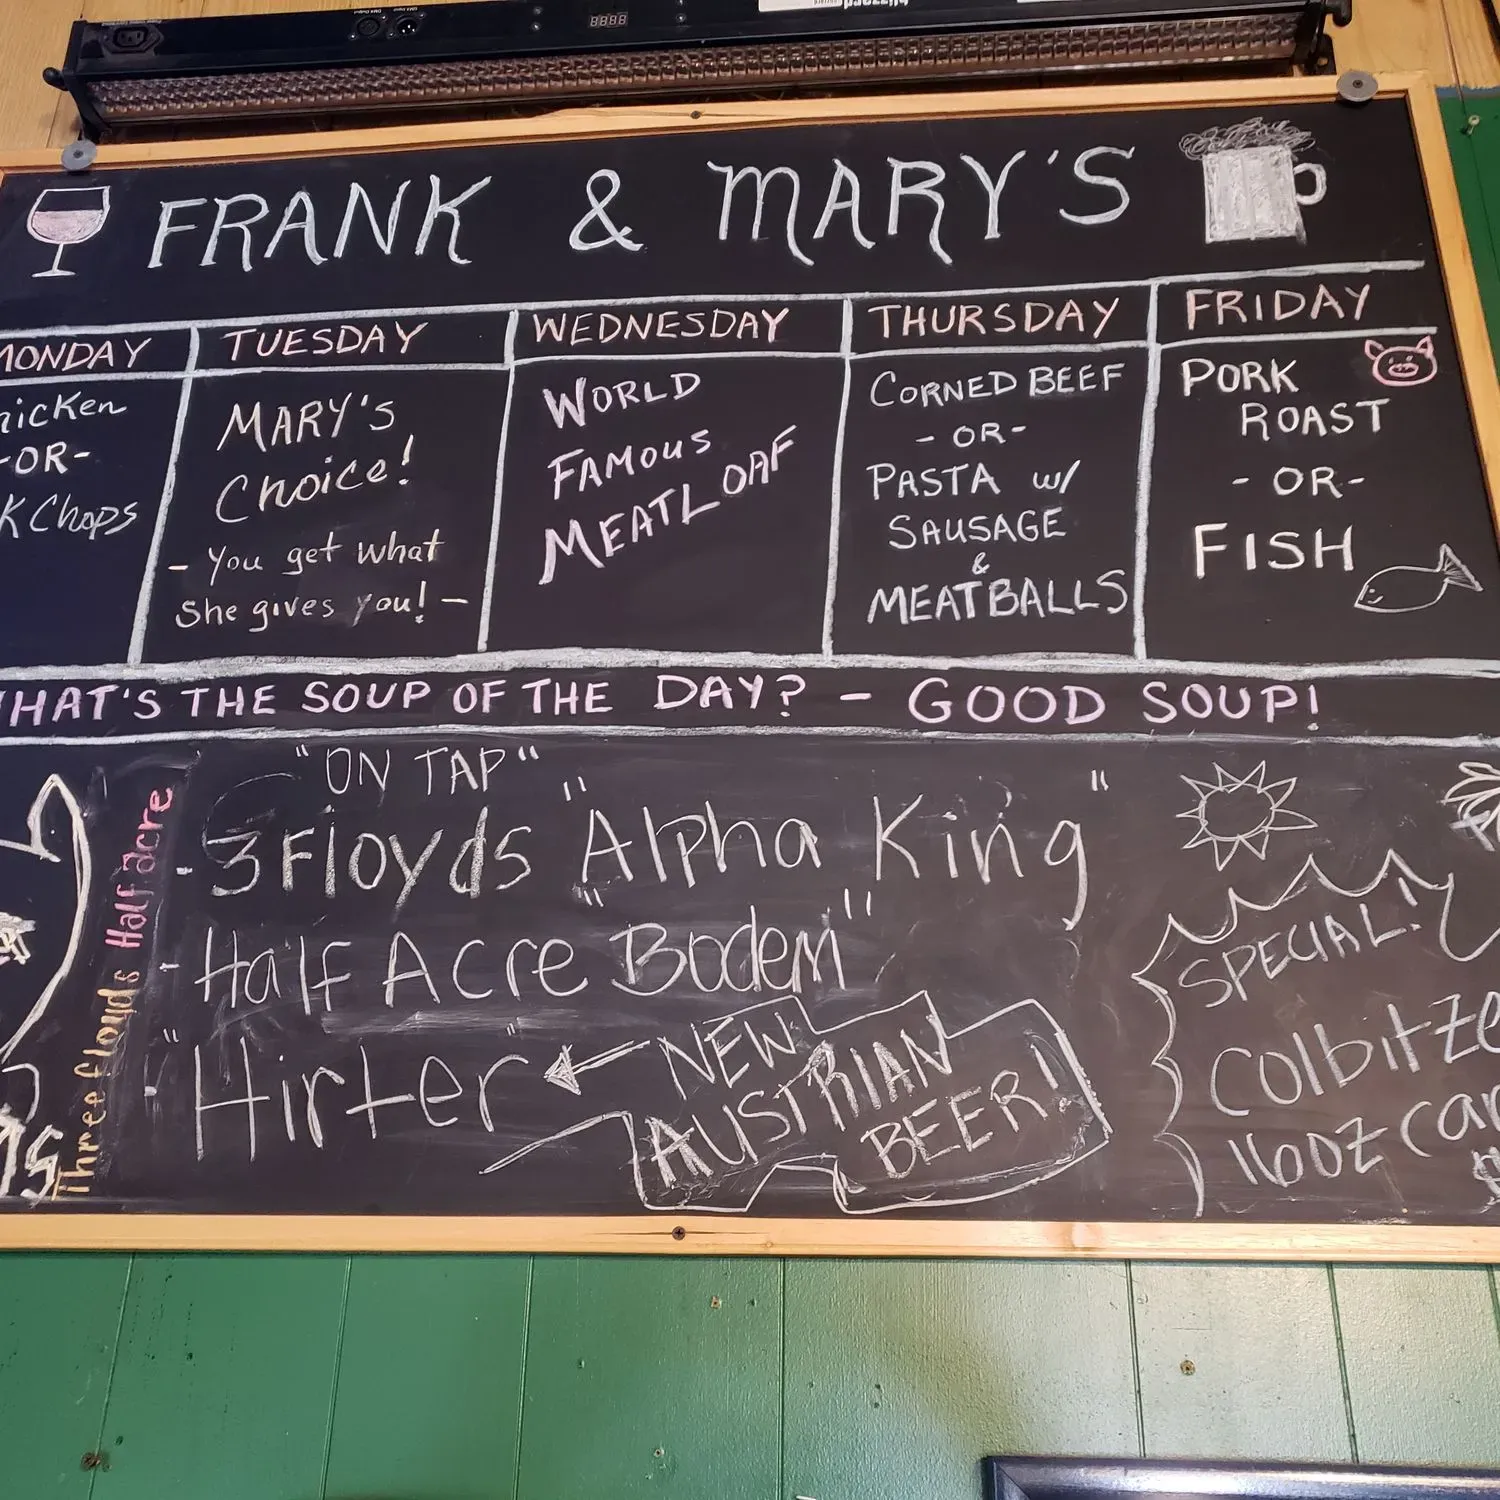 FRANK & MARY'S
MONDAY
TUESDAY
WEDNESDAY
THURSDAY
FRIDAY
hicken
-OR-
K Chops
MARY'S
Choice!
- You get what
She gives you! -
WORLD
FAMOUS
MEATLOAF
CORNED BEEF
- OR -
PASTA w/
SAUSAGE
&
MEATBALLS
PORK
ROAST
- OR -
FISH
WHAT'S THE SOUP OF THE DAY? - GOOD SOUP!
"ON TAP"
- 3 Floyds "Alpha King"
- Half Acre "Bodem"
- "Hirter"
NEW
AUSTRIAN
BEER!
Half acre
Three floyds
SPECIAL!
Colbitze
16oz Can